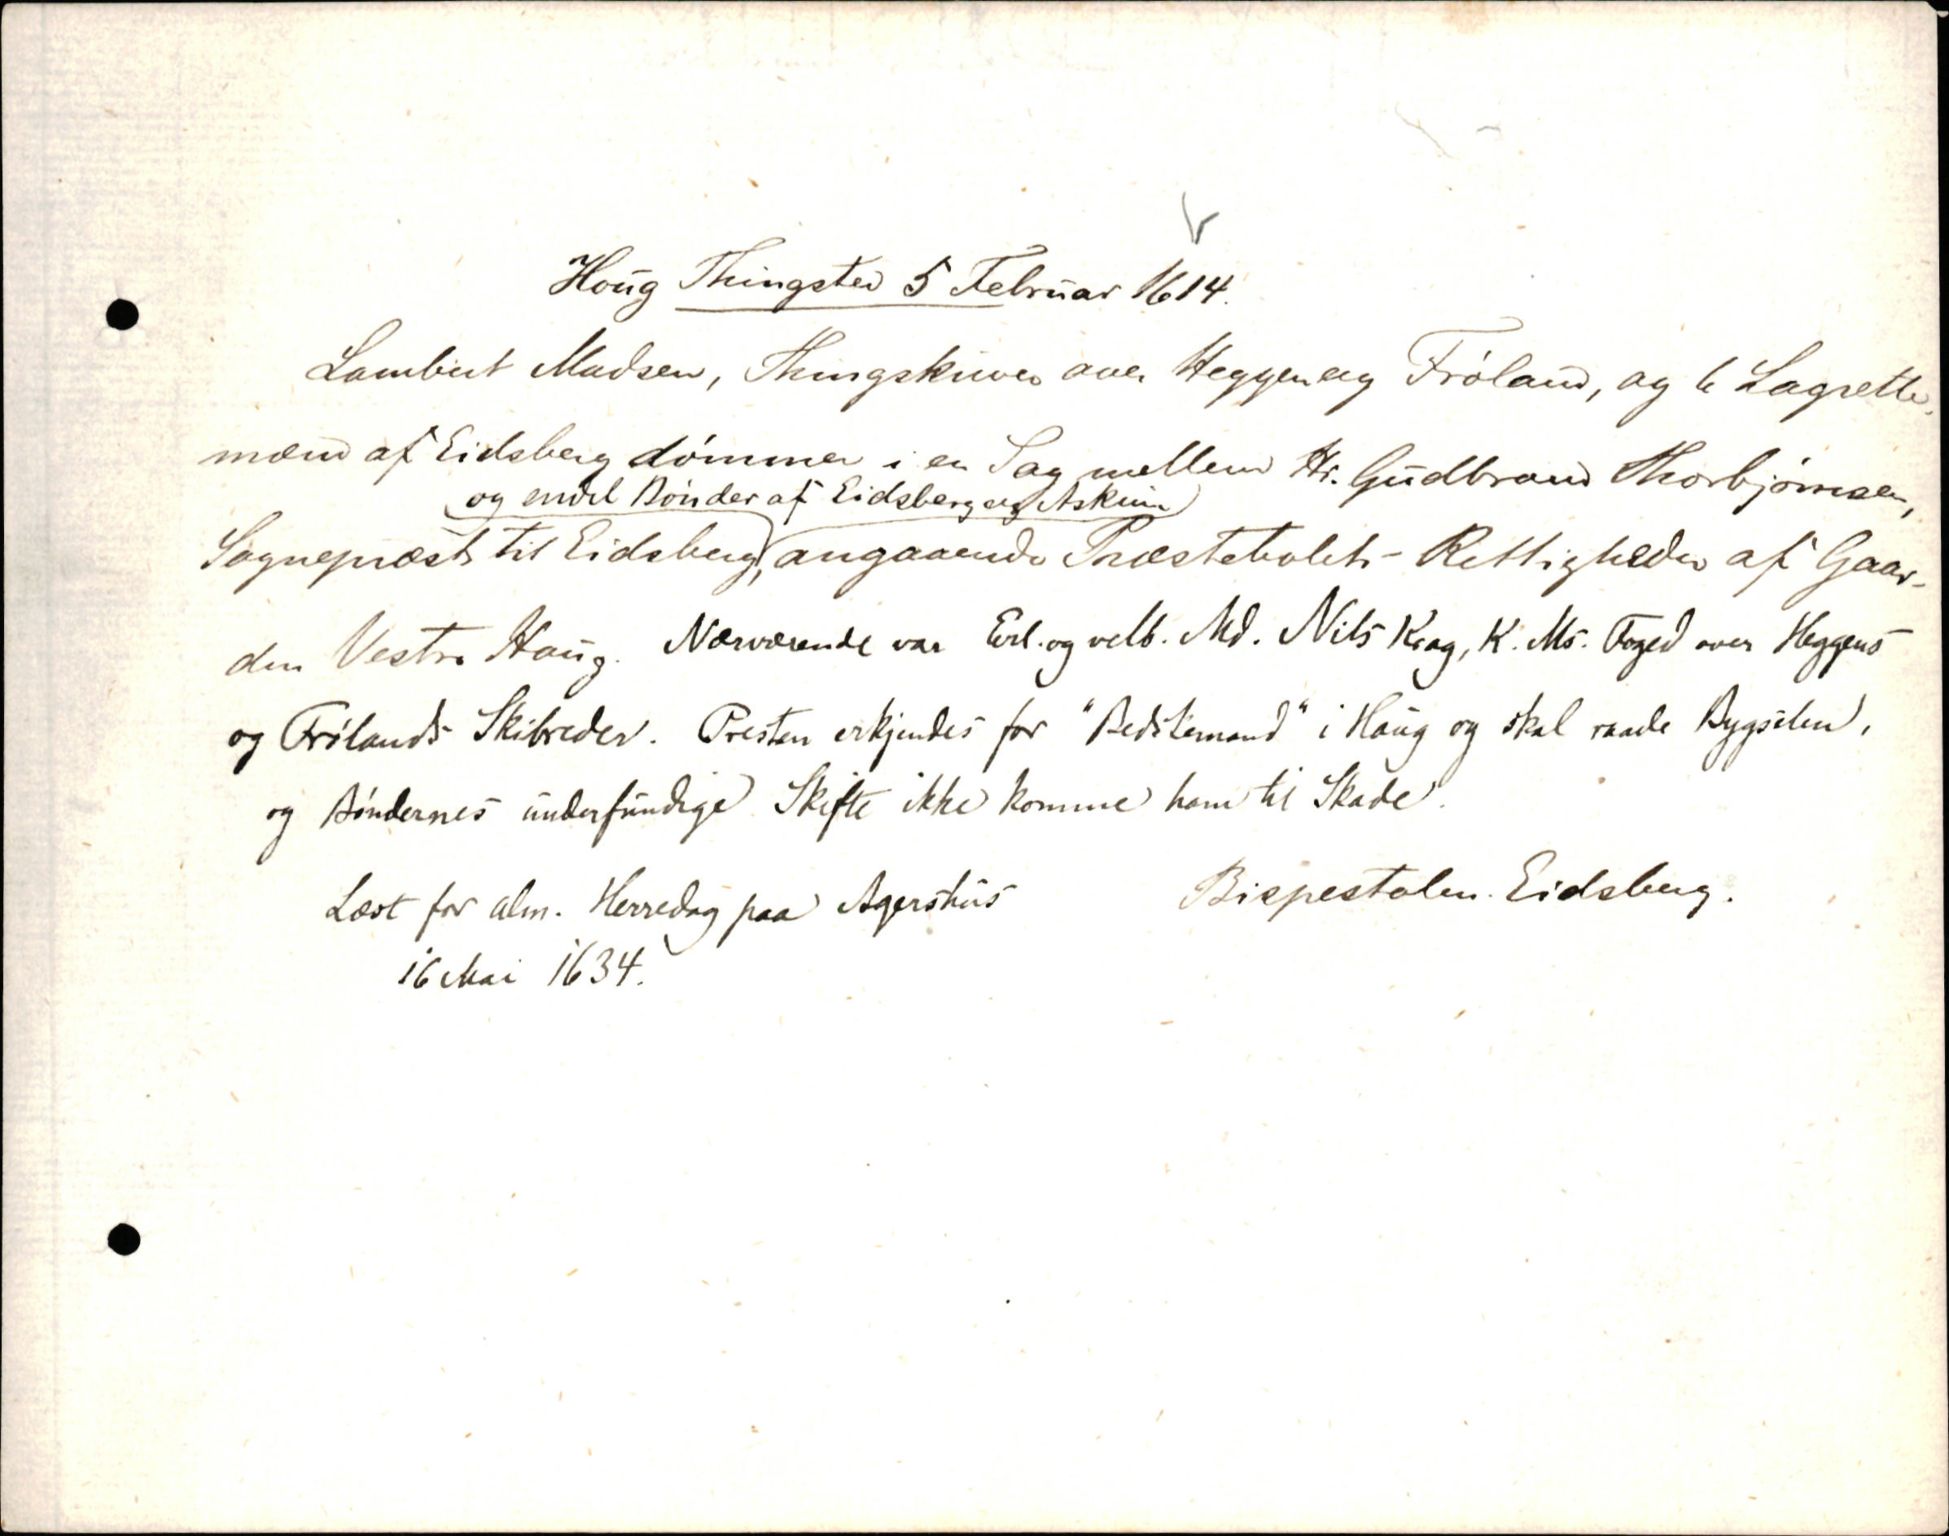 Houg Thingsted 5 Februar 1614.
Lambert Madsen, Thingskriver over Heggen og Frøland, og 6 Lagrette-
mænd af Eidsberg dømmer i en Sag mellem Hr. Gudbrand Thorbjørnsen,
og endel Bønder af Eidsberg og Askim
Sognepræst til Eidsberg, angaaende Præstebolets Rettigheder af Gaar-
den Vestre Haug. Nærværende var Erl. og velb. Md. Nils Krag, K. Ms. Foged over Heggens
og Frølands Skibreder. Presten erkjendes for "Bedstemand" i Haug og skal raade Bygselen,
og Bøndernes underfundige Skifte ikke komme ham til Skade.
Læst for alm. Herredag paa Agershus
16 Mai 1634.
Bispestolen. Eidsberg.